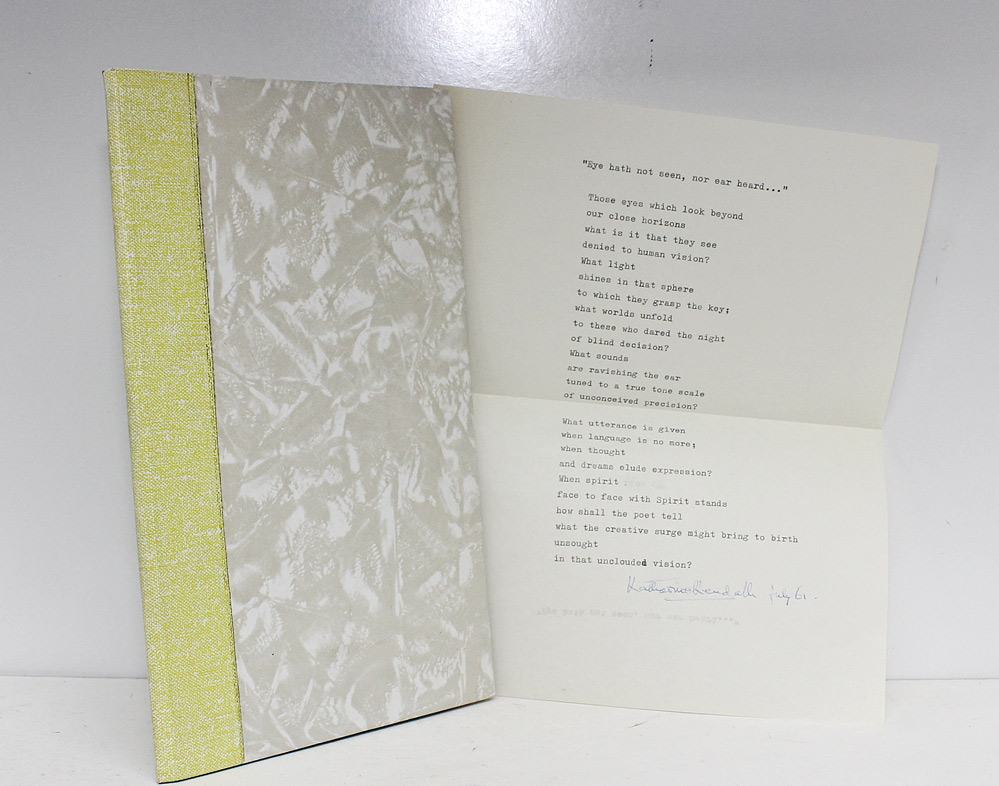 "Eye hath not seen, nor ear heard..."
Those eyes which look beyond
our close horizons
what is it that they see
denied to human vision?
What light
shines in that sphere
to which they grasp the key;
what worlds unfold
to these who dared the night
of blind decision?
What sounds
are ravishing the ear
tuned to a true tone scale
of unconceived precision?
What utterance is given
when language is no more;
when thought
and dreams elude expression?
When spirit
face to face with Spirit stands
how shall the poet tell
what the creative surge might bring to birth
unsought
in that unclouded vision?
Katharine Kendall July 61.
"Eye hath not seen, nor ear heard..."